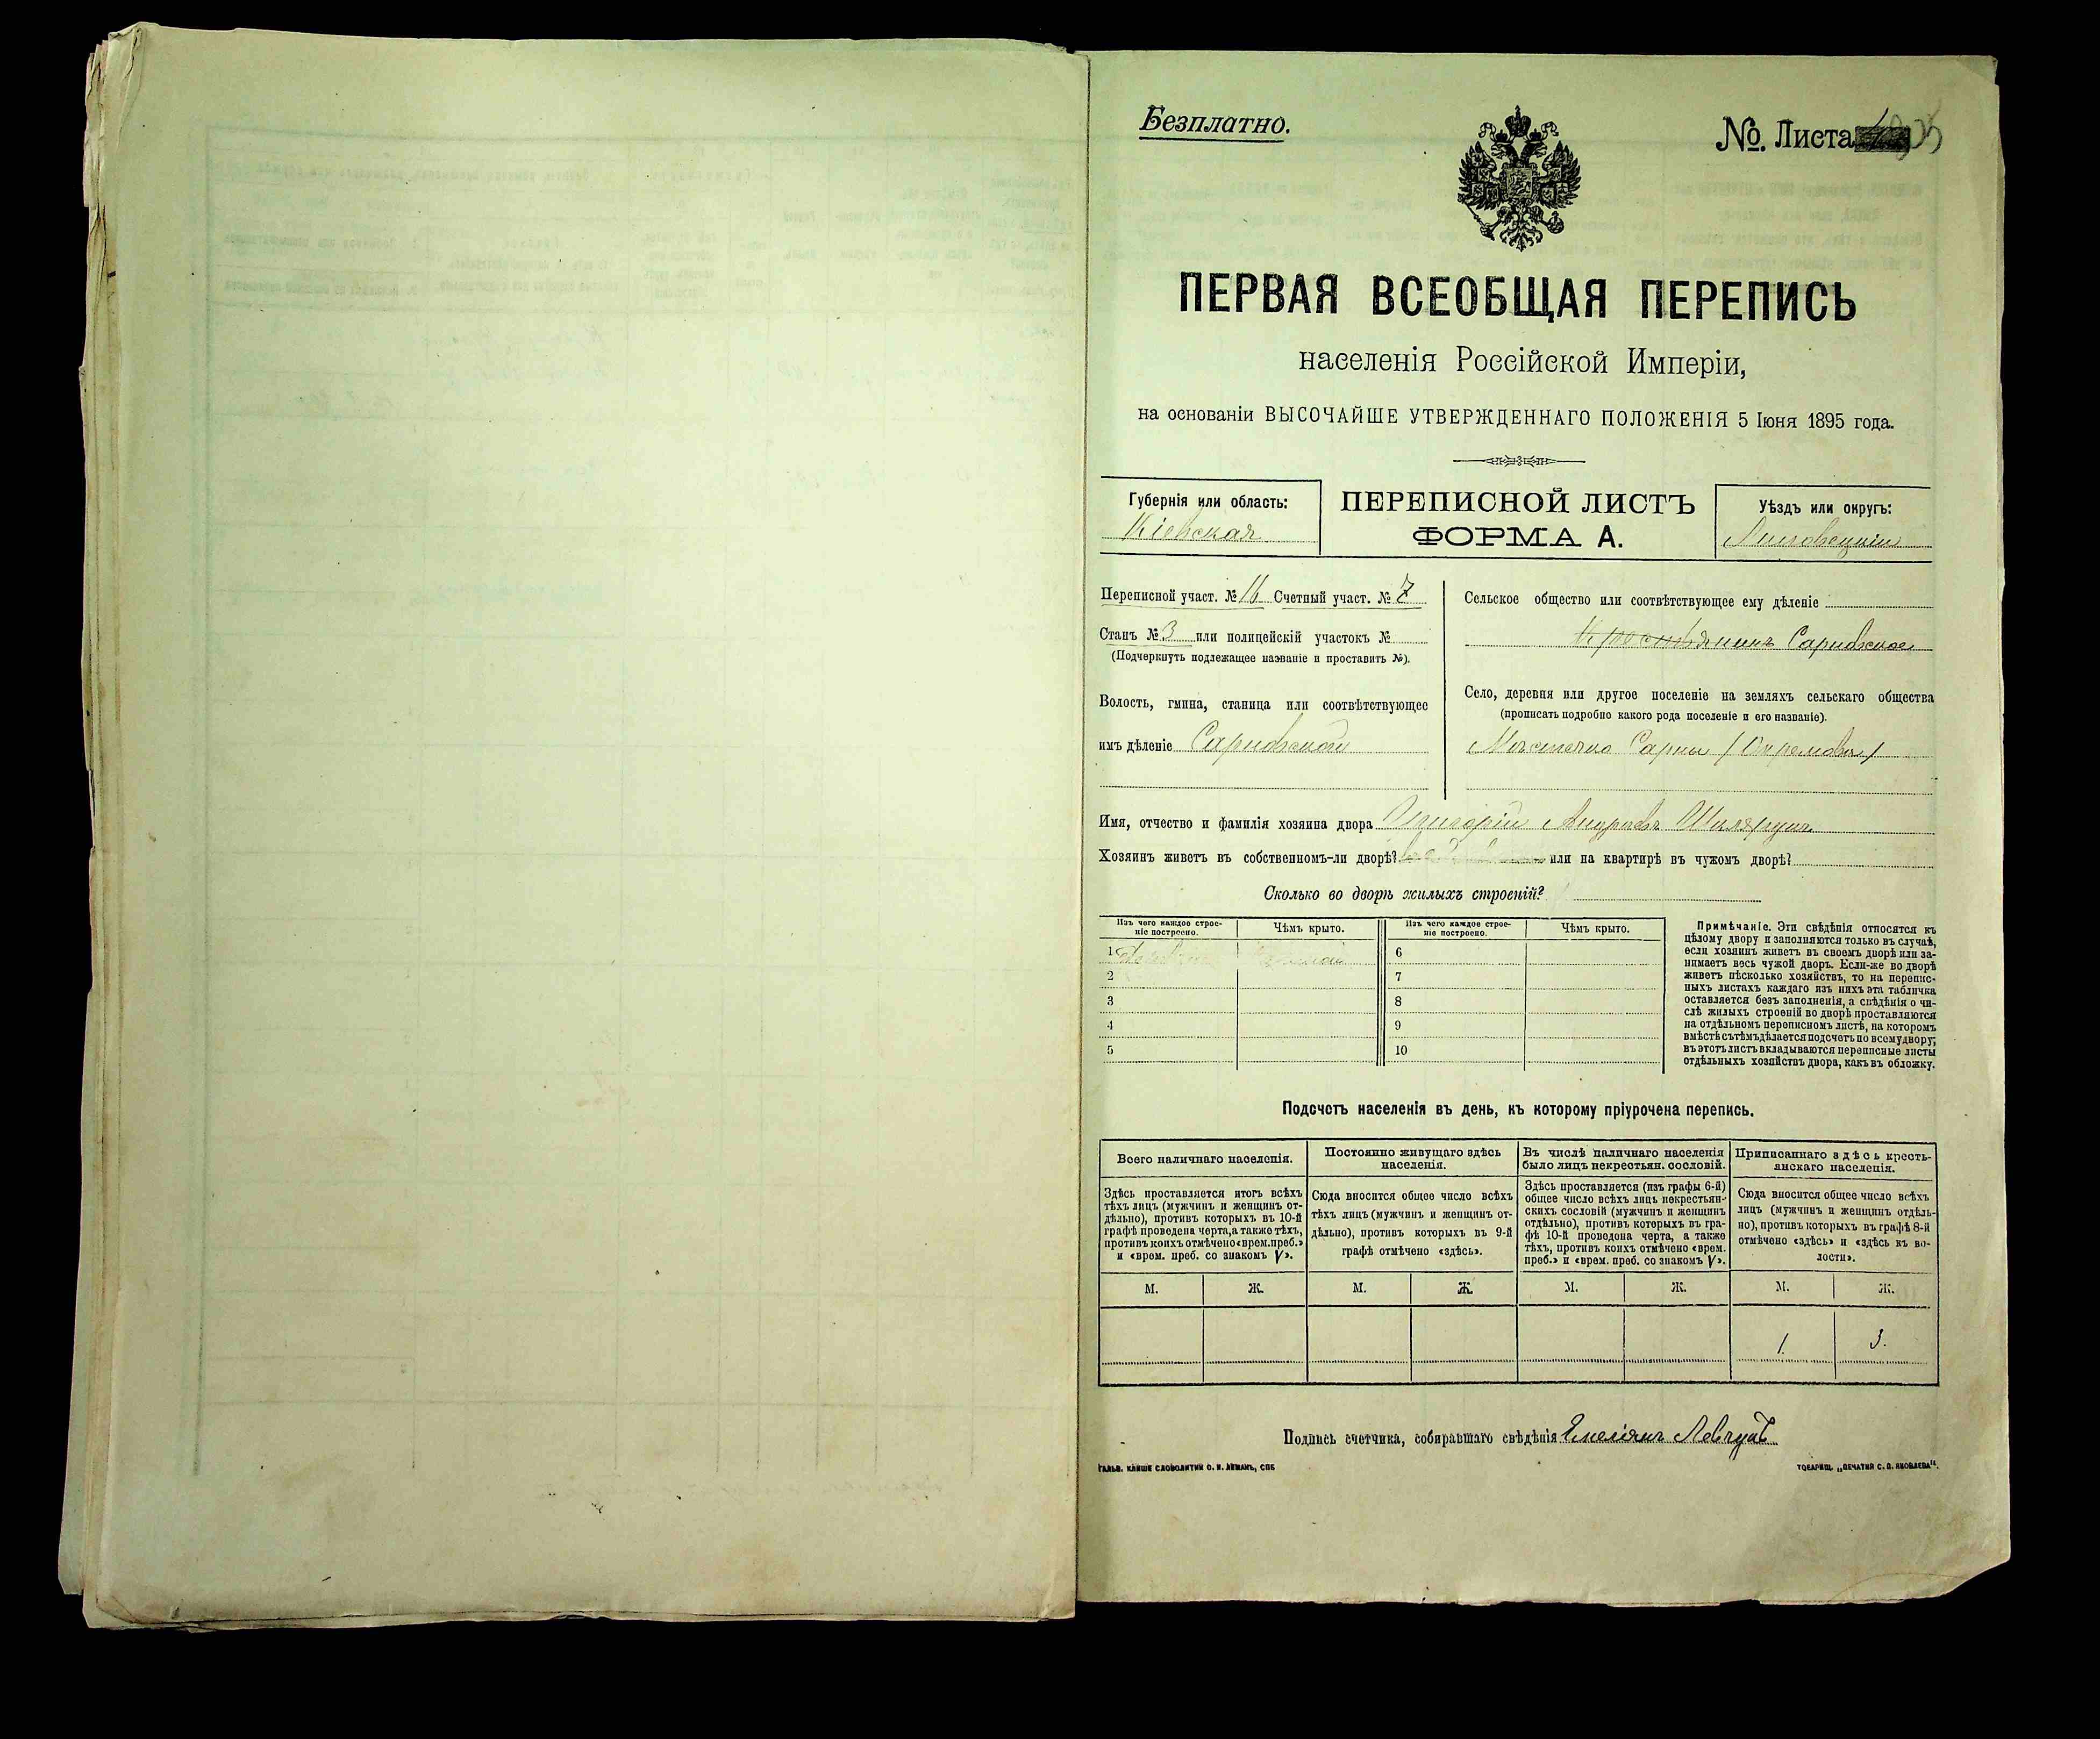 Безплатно.
№. Листа
ПЕРВАЯ ВСЕОБЩАЯ ПЕРЕПИСЬ
населенія Россійской Имперіи,
на основаніи ВЫСОЧАЙШЕ УТВЕРЖДЕННАГО ПОЛОЖЕНІЯ 5 Іюня 1895 года.
Губернія или область:
Кіевская
ПЕРЕПИСНОЙ ЛИСТЪ
ФОРМА А.
Уѣздъ или округъ:
Липовецкій
Переписной участ. № 16 Счетный участ. № 7
Станъ № 3 или полицейскій участокъ №
(Подчеркнуть подлежащее названіе и проставить №).
Волость, гмина, станица или соотвѣтствующее
имъ дѣленіе Сарновской
Сельское общество или соотвѣтствующее ему дѣленіе
Сарновское
Село, деревня или другое поселеніе на земляхъ сельскаго общества
(прописать подробно какого рода поселеніе и его названіе).
Мѣстечко Сарны
Имя, отчество и фамилія хозяина двора Григорій
Хозяинъ живетъ въ собственномъ-ли дворѣ? или на квартирѣ въ чужомъ дворѣ?
Сколько во дворѣ жилыхъ строеній?
Изъ чего каждое строе-
ніе построено.
Чѣмъ крыто.
Изъ чего каждое строе-
ніе построено.
Чѣмъ крыто.
1
2
3
4
5
6
7
8
9
10
Примѣчаніе. Эти свѣдѣнія относятся къ
цѣлому двору и заполняются только въ случаѣ,
если хозяинъ живетъ въ своемъ дворѣ или за-
нимаетъ весь чужой дворъ. Если-же во дворѣ
живетъ нѣсколько хозяйствъ, то на перепис-
ныхъ листахъ каждаго изъ нихъ эта табличка
оставляется безъ заполненія, а свѣдѣнія о чи-
слѣ жилыхъ строеній во дворѣ проставляются
на отдѣльномъ переписномъ листѣ, на которомъ
вмѣстѣ съ тѣмъ дѣлается подсчетъ по всему двору;
въ этотъ листъ вкладываются переписные листы
отдѣльныхъ хозяйствъ двора, какъ въ обложку.
Подсчетъ населенія въ день, къ которому пріурочена перепись.
Всего наличнаго населенія.
Здѣсь проставляется итогъ всѣхъ
тѣхъ лицъ (мужчинъ и женщинъ от-
дѣльно), противъ которыхъ въ 10-й
графѣ проведена черта, а также тѣхъ,
противъ коихъ отмѣчено «врем. преб.»
и «врем. преб. со знакомъ V».
Постоянно живущаго здѣсь
населенія.
Сюда вносится общее число всѣхъ
тѣхъ лицъ (мужчинъ и женщинъ от-
дѣльно), противъ которыхъ въ 9-й
графѣ отмѣчено «здѣсь».
Въ числѣ наличнаго населенія
было лицъ некрестьян. сословій.
Здѣсь проставляется (изъ графы 6-й)
общее число всѣхъ лицъ некрестьян-
скихъ сословій (мужчинъ и женщинъ
отдѣльно), противъ которыхъ въ гра-
фѣ 10-й проведена черта, а также
тѣхъ, противъ коихъ отмѣчено «врем.
преб.» и «врем. преб. со знакомъ V».
Приписаннаго здѣсь кресть-
янскаго населенія.
Сюда вносится общее число всѣхъ
лицъ (мужчинъ и женщинъ отдѣль-
но), противъ которыхъ въ графѣ 8-й
отмѣчено «здѣсь» и «здѣсь къ во-
лости».
М. Ж. М. Ж. М. Ж. М. Ж.
1. 3.
Подпись счетчика, собиравшаго свѣдѣнія Емеліянъ Левчукъ
ГАЛЬВ. КЛИШЕ СЛОВОЛИТНИ О. И. ЛЕМАНЪ, СПБ
ТОВАРИЩ. „ПЕЧАТНЯ С. П. ЯКОВЛЕВА“.